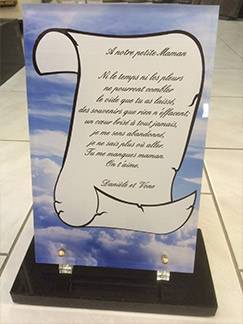 A notre petite Maman
Ni le temps ni les pleurs
ne pourront combler
le vide que tu as laissé,
des souvenirs que rien n'effacent;
un cœur brisé à tout jamais,
je me sens abandonné,
je ne sais plus où aller.
Tu me manques maman.
On t'aime.
Danièle et Vène